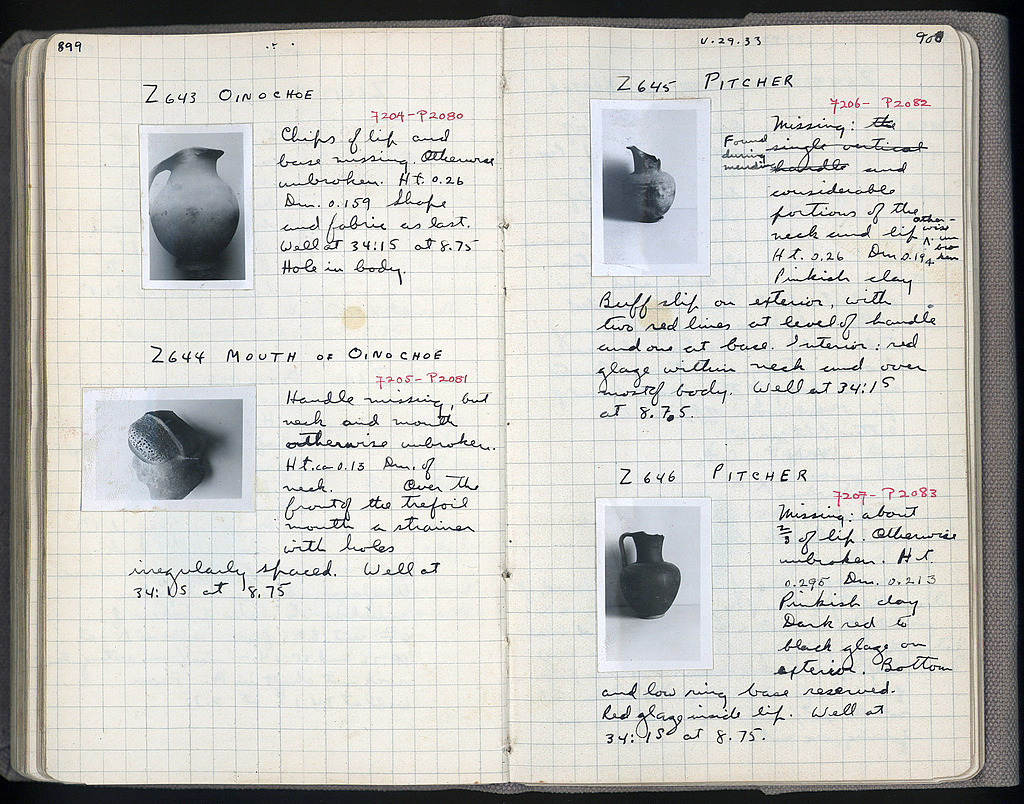 899
Z643 OINOCHOE
7204-P2080
Chips of lip and
base missing. Otherwise
unbroken. Ht. 0.26
Dm. 0.159 Shape
and fabric as last.
Well at 34:15 at 8.75
Hole in body.
Z644 MOUTH OF OINOCHOE
7205-P2081
Handle missing, but
neck and mouth
otherwise unbroken.
Ht. ca 0.13 Dm. of
neck. Over the
front of the trefoil
mouth a strainer
with holes
irregularly spaced. Well at
34:15 at 8.75
V.29.33
900
Z645 PITCHER
7206-P2082
Missing: the
single vertical
handle and
Found
during
mending
considerable
portions of the
neck and lip otherwise unbroken
Ht. 0.26 Dm 0.194
Pinkish clay
Buff slip on exterior, with
two red lines at level of handle
and one at base. Interior: red
glaze within neck and over
most of body. Well at 34:15
at 8.75.
Z646 PITCHER
7207-P2083
Missing: about
2/3 of lip. Otherwise
unbroken. Ht.
0.295 Dm. 0.213
Pinkish clay
Dark red to
black glaze on
exterior. Bottom
and low ring base reserved.
Red glaze inside lip. Well at
34:15 at 8.75.